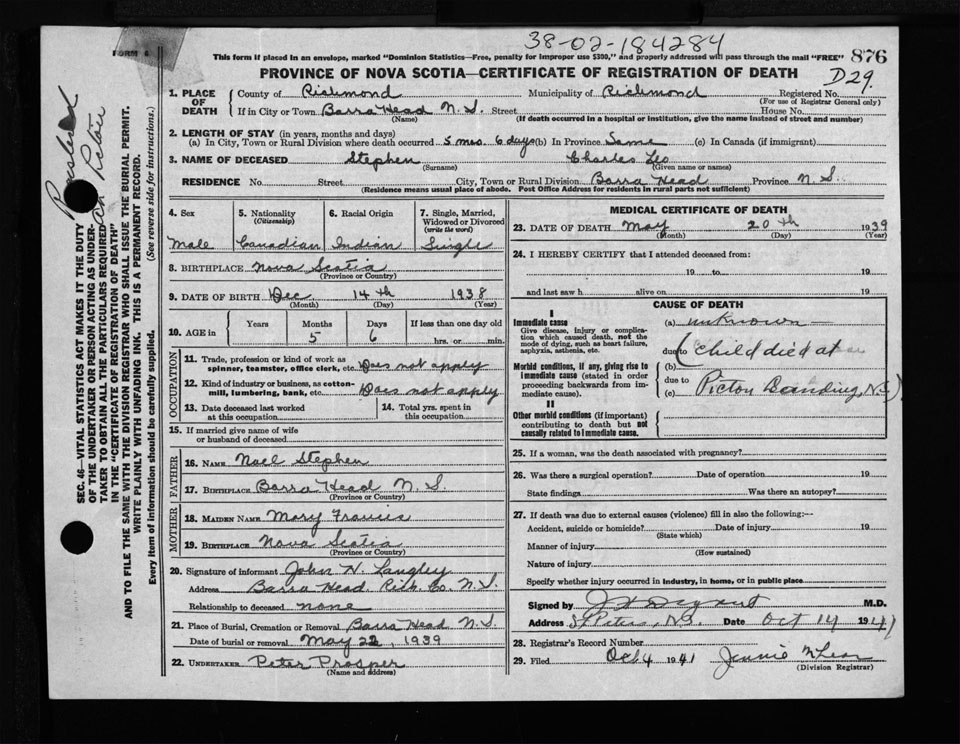 38-02-184284
FORM 6
This form if placed in an envelope, marked "Dominion Statistics—Free, penalty for improper use $300," and properly addressed will pass through the mail "FREE" 876
PROVINCE OF NOVA SCOTIA—CERTIFICATE OF REGISTRATION OF DEATH D29.
1. PLACE OF DEATH
County of Richmond Municipality of Richmond Registered No.
(For use of Registrar General only)
If in City or Town Barra Head N. S. Street House No.
(Name) (If death occurred in a hospital or institution, give the name instead of street and number)
2. LENGTH OF STAY (in years, months and days)
(a) In City, Town or Rural Division where death occurred 5 mos. 6 days (b) In Province Same (c) In Canada (if immigrant)
3. NAME OF DECEASED Stephen Charles Leo
(Surname) (Given name or names)
RESIDENCE No. Street City, Town or Rural Division Barra Head Province N. S.
(Residence means usual place of abode. Post Office Address for residents in rural parts not sufficient)
4. Sex 5. Nationality (Citizenship) 6. Racial Origin 7. Single, Married, Widowed or Divorced (write the word)
Male Canadian Indian Single
8. BIRTHPLACE Nova Scotia
(Province or Country)
9. DATE OF BIRTH Dec. 14th 1938
(Month) (Day) (Year)
10. AGE in Years Months Days If less than one day old
5 6 hrs. or min.
OCCUPATION
11. Trade, profession or kind of work as spinner, teamster, office clerk, etc. Does not apply
12. Kind of industry or business, as cotton-mill, lumbering, bank, etc. Does not apply
13. Date deceased last worked at this occupation
14. Total yrs. spent in this occupation
15. If married give name of wife or husband of deceased
FATHER
16. NAME Noel Stephen
17. BIRTHPLACE Barra Head N. S.
(Province or Country)
MOTHER
18. MAIDEN NAME Mary Francis
19. BIRTHPLACE Nova Scotia
(Province or Country)
20. Signature of informant John N. Langley
Address Barra Head. Rich. Co. N. S.
Relationship to deceased none
21. Place of Burial, Cremation or Removal Barra Head N. S.
Date of burial or removal May 22, 1939
22. UNDERTAKER Peter Prosper
(Name and address)
MEDICAL CERTIFICATE OF DEATH
23. DATE OF DEATH May 20th 1939
(Month) (Day) (Year)
24. I HEREBY CERTIFY that I attended deceased from:
19 to 19
and last saw h alive on 19
CAUSE OF DEATH
I
Immediate cause
Give disease, injury or complication which caused death, not the mode of dying, such as heart failure, asphyxia, asthenia, etc.
(a) unknown
due to (child died at
Morbid conditions, if any, giving rise to immediate cause (stated in order proceeding backwards from immediate cause).
(b)
due to
(c) Picton Landing, N.S)
II
Other morbid conditions (if important) contributing to death but not causally related to immediate cause.
25. If a woman, was the death associated with pregnancy?
26. Was there a surgical operation? Date of operation 19
State findings Was there an autopsy?
27. If death was due to external causes (violence) fill in also the following:—
Accident, suicide or homicide? Date of injury 19
(State which)
Manner of injury
(How sustained)
Nature of injury
Specify whether injury occurred in industry, in home, or in public place
Signed by M.D.
Address St. Peters, N.S. Date Oct 14 1941
28. Registrar's Record Number
29. Filed Oct 4 1941 Jennie McLean
(Division Registrar)
SEC. 46—VITAL STATISTICS ACT MAKES IT THE DUTY
OF THE UNDERTAKER OR PERSON ACTING AS UNDER-
TAKER TO OBTAIN ALL THE PARTICULARS REQUIRED
IN THE "CERTIFICATE OF REGISTRATION OF DEATH"
AND TO FILE THE SAME WITH THE DIVISION REGISTRAR WHO SHALL ISSUE THE BURIAL PERMIT.
WRITE PLAINLY WITH UNFADING INK. THIS IS A PERMANENT RECORD.
Every item of information should be carefully supplied. (See reverse side for instructions.)